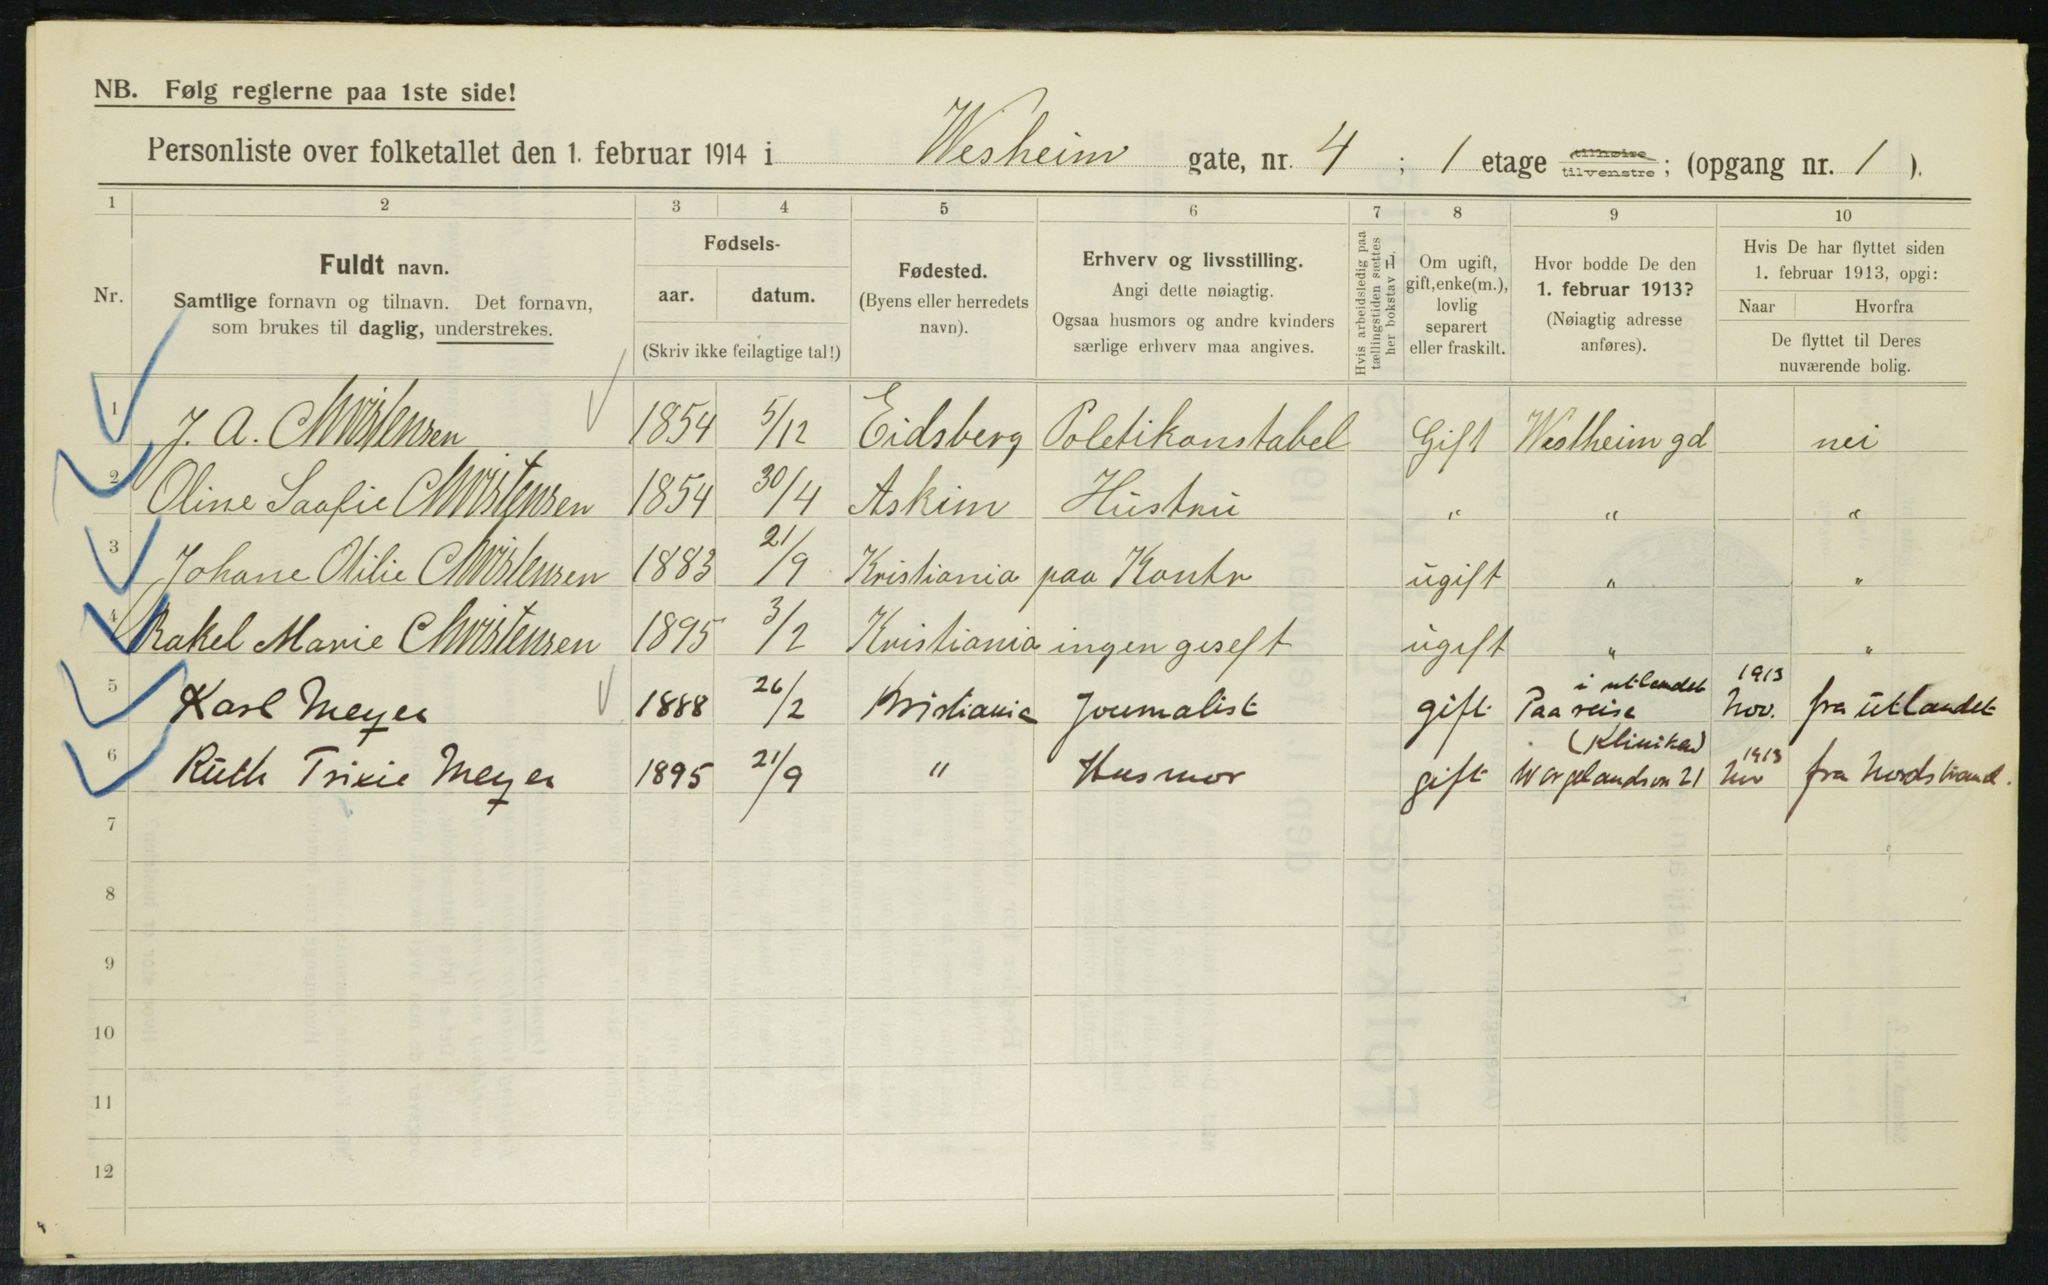 NB. Følg reglerne paa 1ste side!
Personliste over folketallet den 1. februar 1914 i Wesheim gate, nr. 4 ; 1 etage tilhøire tilvenstre ; (opgang nr. 1 ).
1 2 3 4 5 6 7 8 9 10
Nr.
Fuldt navn.
Samtlige fornavn og tilnavn. Det fornavn,
som brukes til daglig, understrekes.
Fødsels-
aar. datum.
(Skriv ikke feilagtige tal!)
Fødested.
(Byens eller herredets
navn).
Erhverv og livsstilling.
Angi dette nøiagtig.
Ogsaa husmors og andre kvinders
særlige erhverv maa angives.
Hvis arbeidsledig paa
tællingstiden sættes
her bokstav L.
Om ugift,
gift, enke(m.),
lovlig
separert
eller fraskilt.
Hvor bodde De den
1. februar 1913?
(Nøiagtig adresse
anføres).
Hvis De har flyttet siden
1. februar 1913, opgi:
Naar Hvorfra
De flyttet til Deres
nuværende bolig.
1 J. A. Christensen 1854 5/12 Eidsberg Poletikonstabel Gift Westheim gd nei
2 Oline Saafie Christensen 1854 30/4 Askim Hustru " " "
3 Johane Otilie Christensen 1883 21/9 Kristiania paa Kontr ugift " "
4 Rakel Marie Christensen 1895 3/2 Kristiania ingen geseft ugift " "
5 Karl Meyer 1888 26/2 Kristiania Journalist gift Paa reise i utlandet 1913 Nov. fra utlandet
6 Ruth Trixie Meyer 1895 21/9 " Husmor gift (Kliniken) 21 1913 Nov fra Nordstrand.
7
8
9
10
11
12